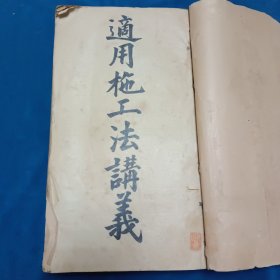 適用施工法講義